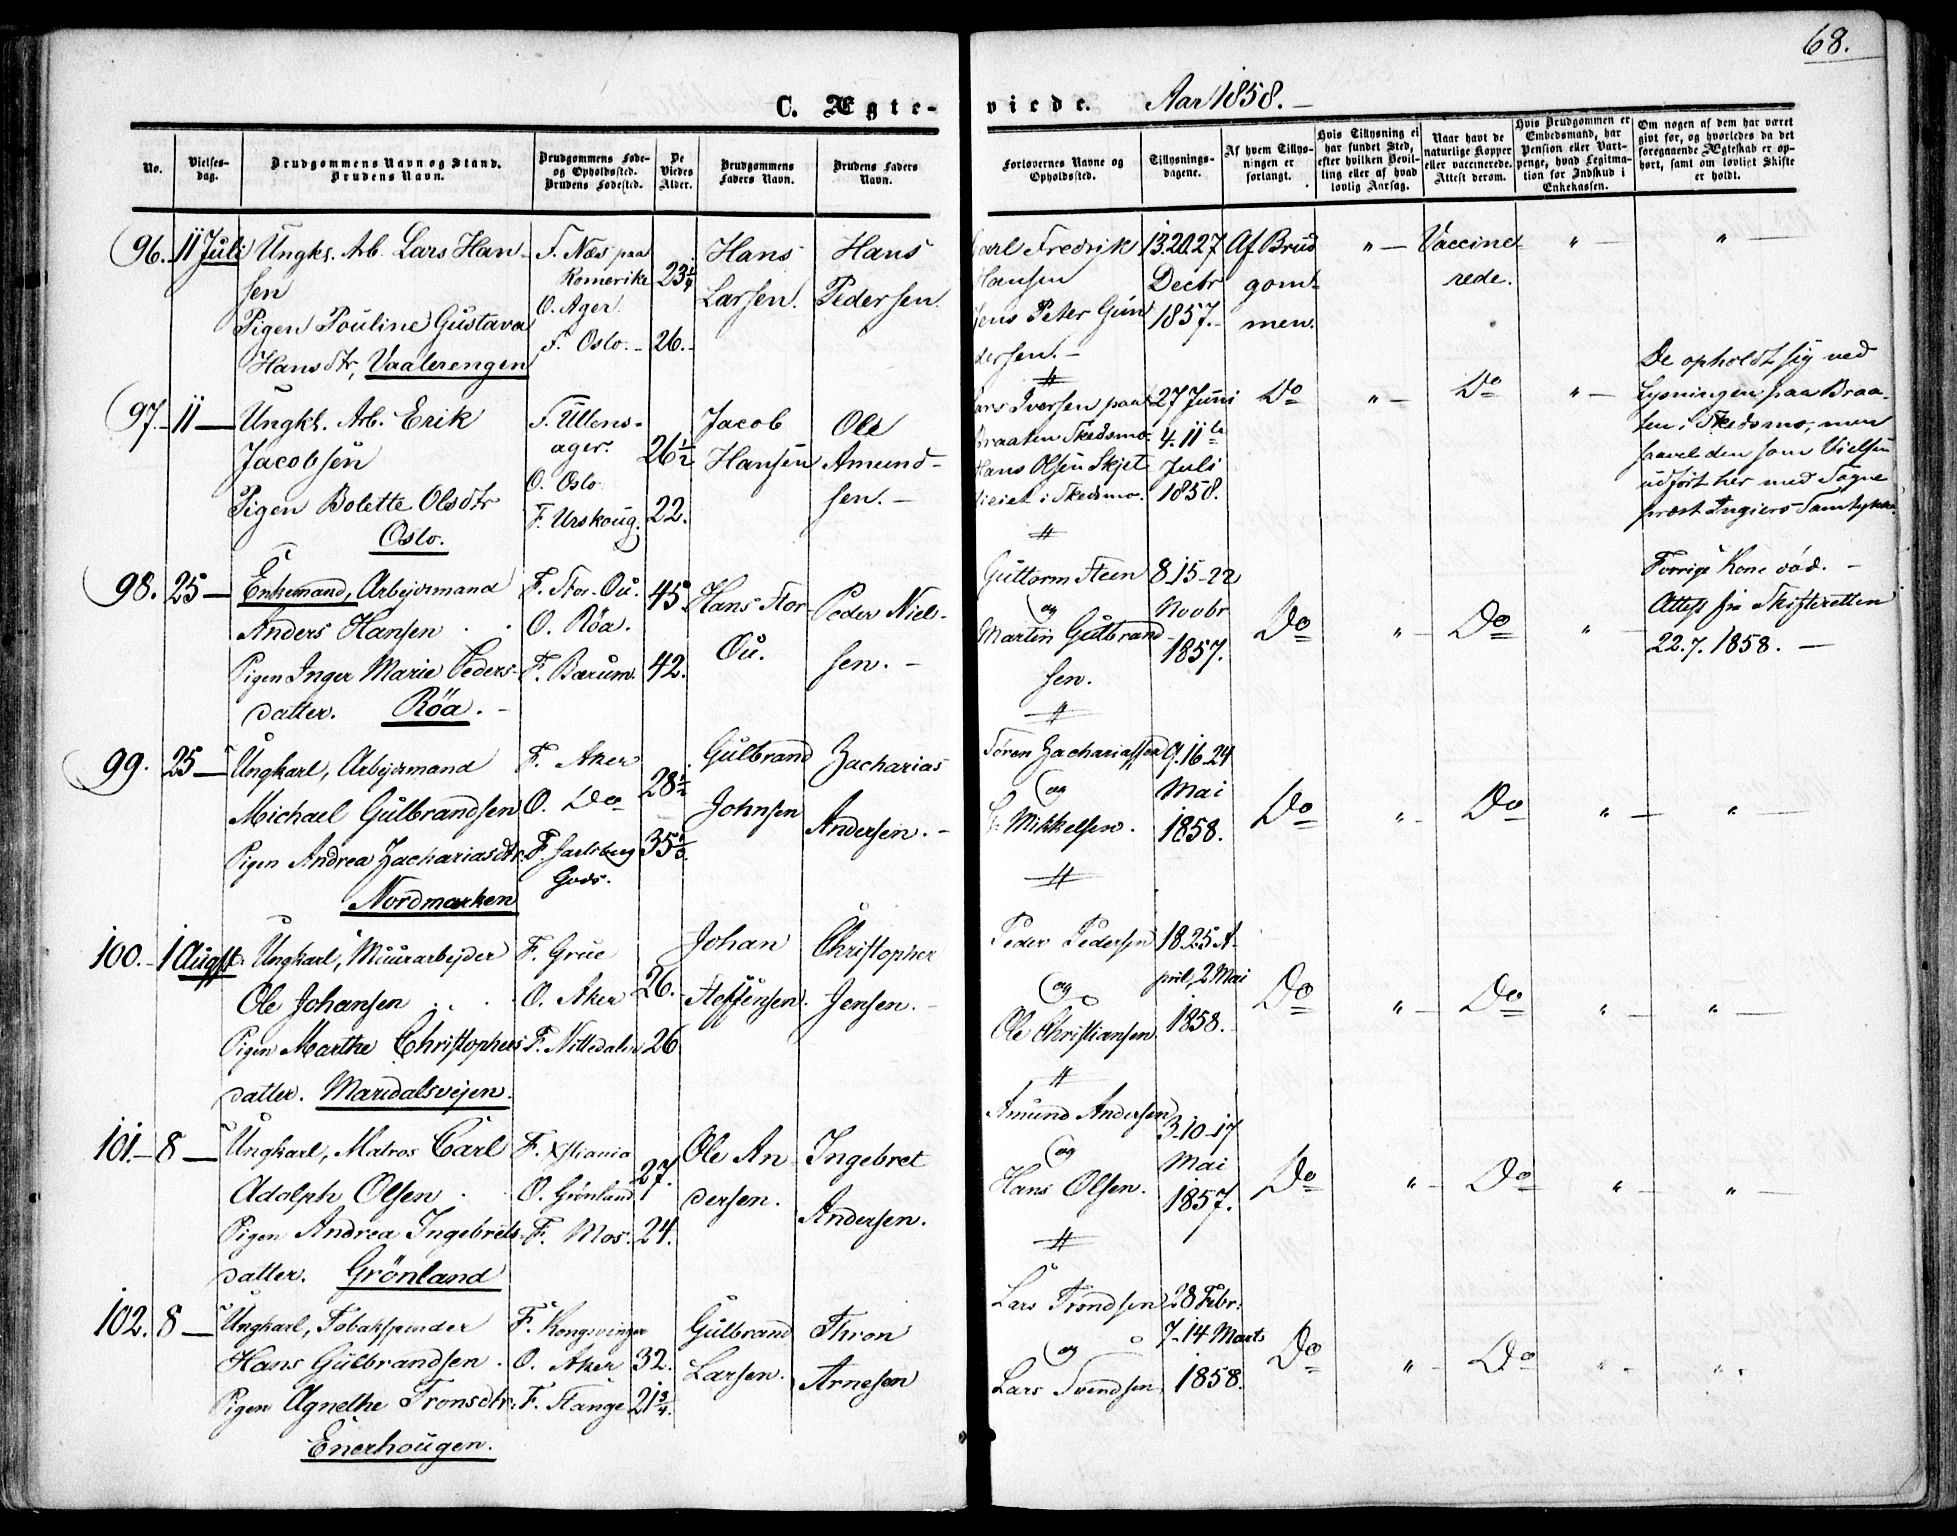 68.
C. Ægte-
viede. Aar 1858.
No.
Vielses-
dag.
Brudgommens Navn og Stand.
Brudens Navn.
Brudgommens Føde-
og Opholdssted.
Brudens Fødested.
De
Viedes
Alder.
Brudgommens
Faders Navn.
Brudens Faders
Navn.
Forlovernes Navne og
Opholdssted.
Tillysnings-
dagene.
Af hvem Tillys-
ningen er
forlangt.
Hvis Tillysning ei
har fundet Sted,
efter hvilken Bevil-
ling eller af hvad
lovlig Aarsag.
Naar havt de
naturlige Kopper
eller vaccinerede.
Attest derom.
Hvis Brudgommen er
Embedsmand, har
Pension eller Vart-
penge, hvad Legitma-
tion for Indskud i
Enkekassen.
Om nogen af dem har været
gift før, og hvorledes da det
foregaaende Ægteskab er op-
hørt, samt om lovligt Skifte
er holdt.
96. 11 Juli
Ungk. Arb. Lars Han-
sen
Pigen Pouline Gustava
Hansdtr, Vaalerengen
F. Næs paa
Romerike
O. Ager.
F. Oslo. -
23 1/4
26. -
Hans
Larsen.
Hans
Pedersen
Carl Fredrik
Hansen
Jens Peter Gun
dersen. -
13.20.27
Decbr
1857. -
Af Brud
gom-
men.
" -
Vaccine
rede.
" -
" -
97. - 11 -
Ungk. Arb. Erik
Jacobsen
Pigen Bolette Olsdtr
Oslo.
F. Ullens-
ager.
O. Oslo
F. Urskoug.
26 1/2
22.
Jacob
Hansen
Ole
Amund-
sen. -
Lars Iversen paa
Braaten Skedsmo.
Hans Olsen Skjet
i Skedsmo.
27 Juni
4. 11te
Juli
1858.
Do
" -
Do
" -
De opholdt sig ved
Lysningen paa Braa-
ten i Skedsmo, men
den som Vielsen
udført her med Sogne
præst Ingiers Samtykke.
98. 25 -
Enkemand, Arbejdsmand
Anders Hansen
Pigen Inger Marie Peders-
datter. Röa. -
F. Stor-Öu.
O. Röa.
F. Bærum.
45
42.
Hans Stor
Öu.
Peder Niel-
sen. -
Guttorm Steen
og
Martin Gulbrand-
sen.
8-15-22
Novbr
1857.
Do
" -
Do
" -
Forrige Kone död. -
Attest fra Skifteretten
22.7.1858. -
99. 25 -
Ungkarl, Arbejdsmand
Michael Gulbrandsen
Pigen Andrea Zachariasdtr.
Nordmarken
F. Aker
O. Do
F. Jarlsberg
Gods.
28 1/2
Gulbrand
Johnsen
Zacharias
Andersen. -
Sören Zachariassen
og
Mikkelsen.
9.16-24
Mai
1858.
Do
" -
Do
" -
" -
100. - 1 August
Ungkarl, Muurarbejder
Ole Johansen
Pigen Marthe Christophers
datter. Maridalsvejen.
F. Grue
O. Aker
F. Nittedalen
26.
26
Johan
Steffensen.
Christopher
Jensen. -
Peder Pedersen
og
Ole Christiansen
18.25 A-
pril, 2 Mai
1858.
Do
" -
Do
" -
" -
101. - 8 -
Ungkarl, Matros Carl
Adolph Olsen
Pigen Andrea Ingebrets-
datter. Grönland
F. Xstiania
O. Grönland
F. Mos.
27.
24.
Ole An-
dersen.
Ingebret
Andersen.
Amund Andersen
og
Hans Olsen.
3-10-17
Mai
1857.
Do
" -
Do
" -
" -
102. 8 -
Ungkarl, Tobakspinder
Hans Gulbrandsen
Pigen Agnethe Tronsdtr.
Enerhougen.
F. Kongsvinger
O. Aker
F. Stange
32.
21 3/4.
Gulbrand
Larsen.
Thron
Arnesen
Lars Trondsen
og
Lars Svendsen
28 Febr.
7-14 Marts
1858.
Do
" -
Do
" -
" -